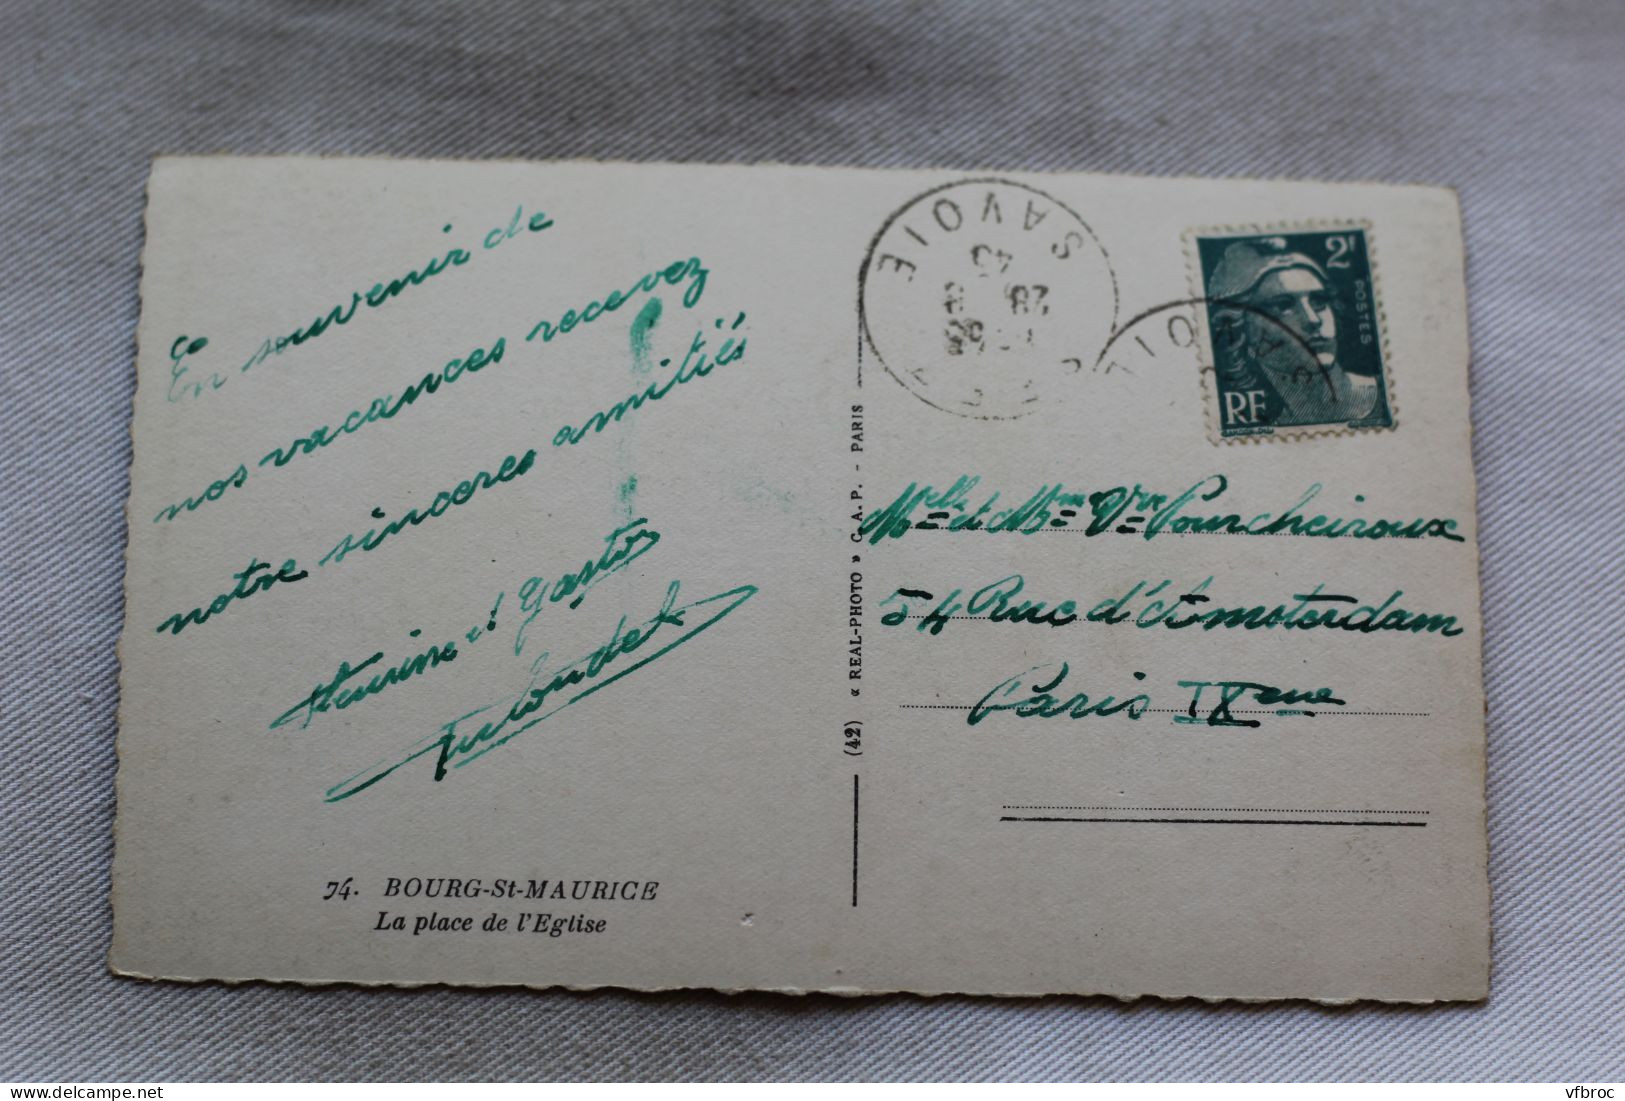 En souvenir de
nos vacances recevez
notre sincères amitiés
et Gaston
74. BOURG-St-MAURICE
La place de l'Eglise
(42) « REAL-PHOTO » C.A.P. - PARIS
SAVOIE
28
45
2F
POSTES
RF
Melle et Mme Vve Pourcheiroux
54 Rue d'Amsterdam
Paris IXeme
vfbroc